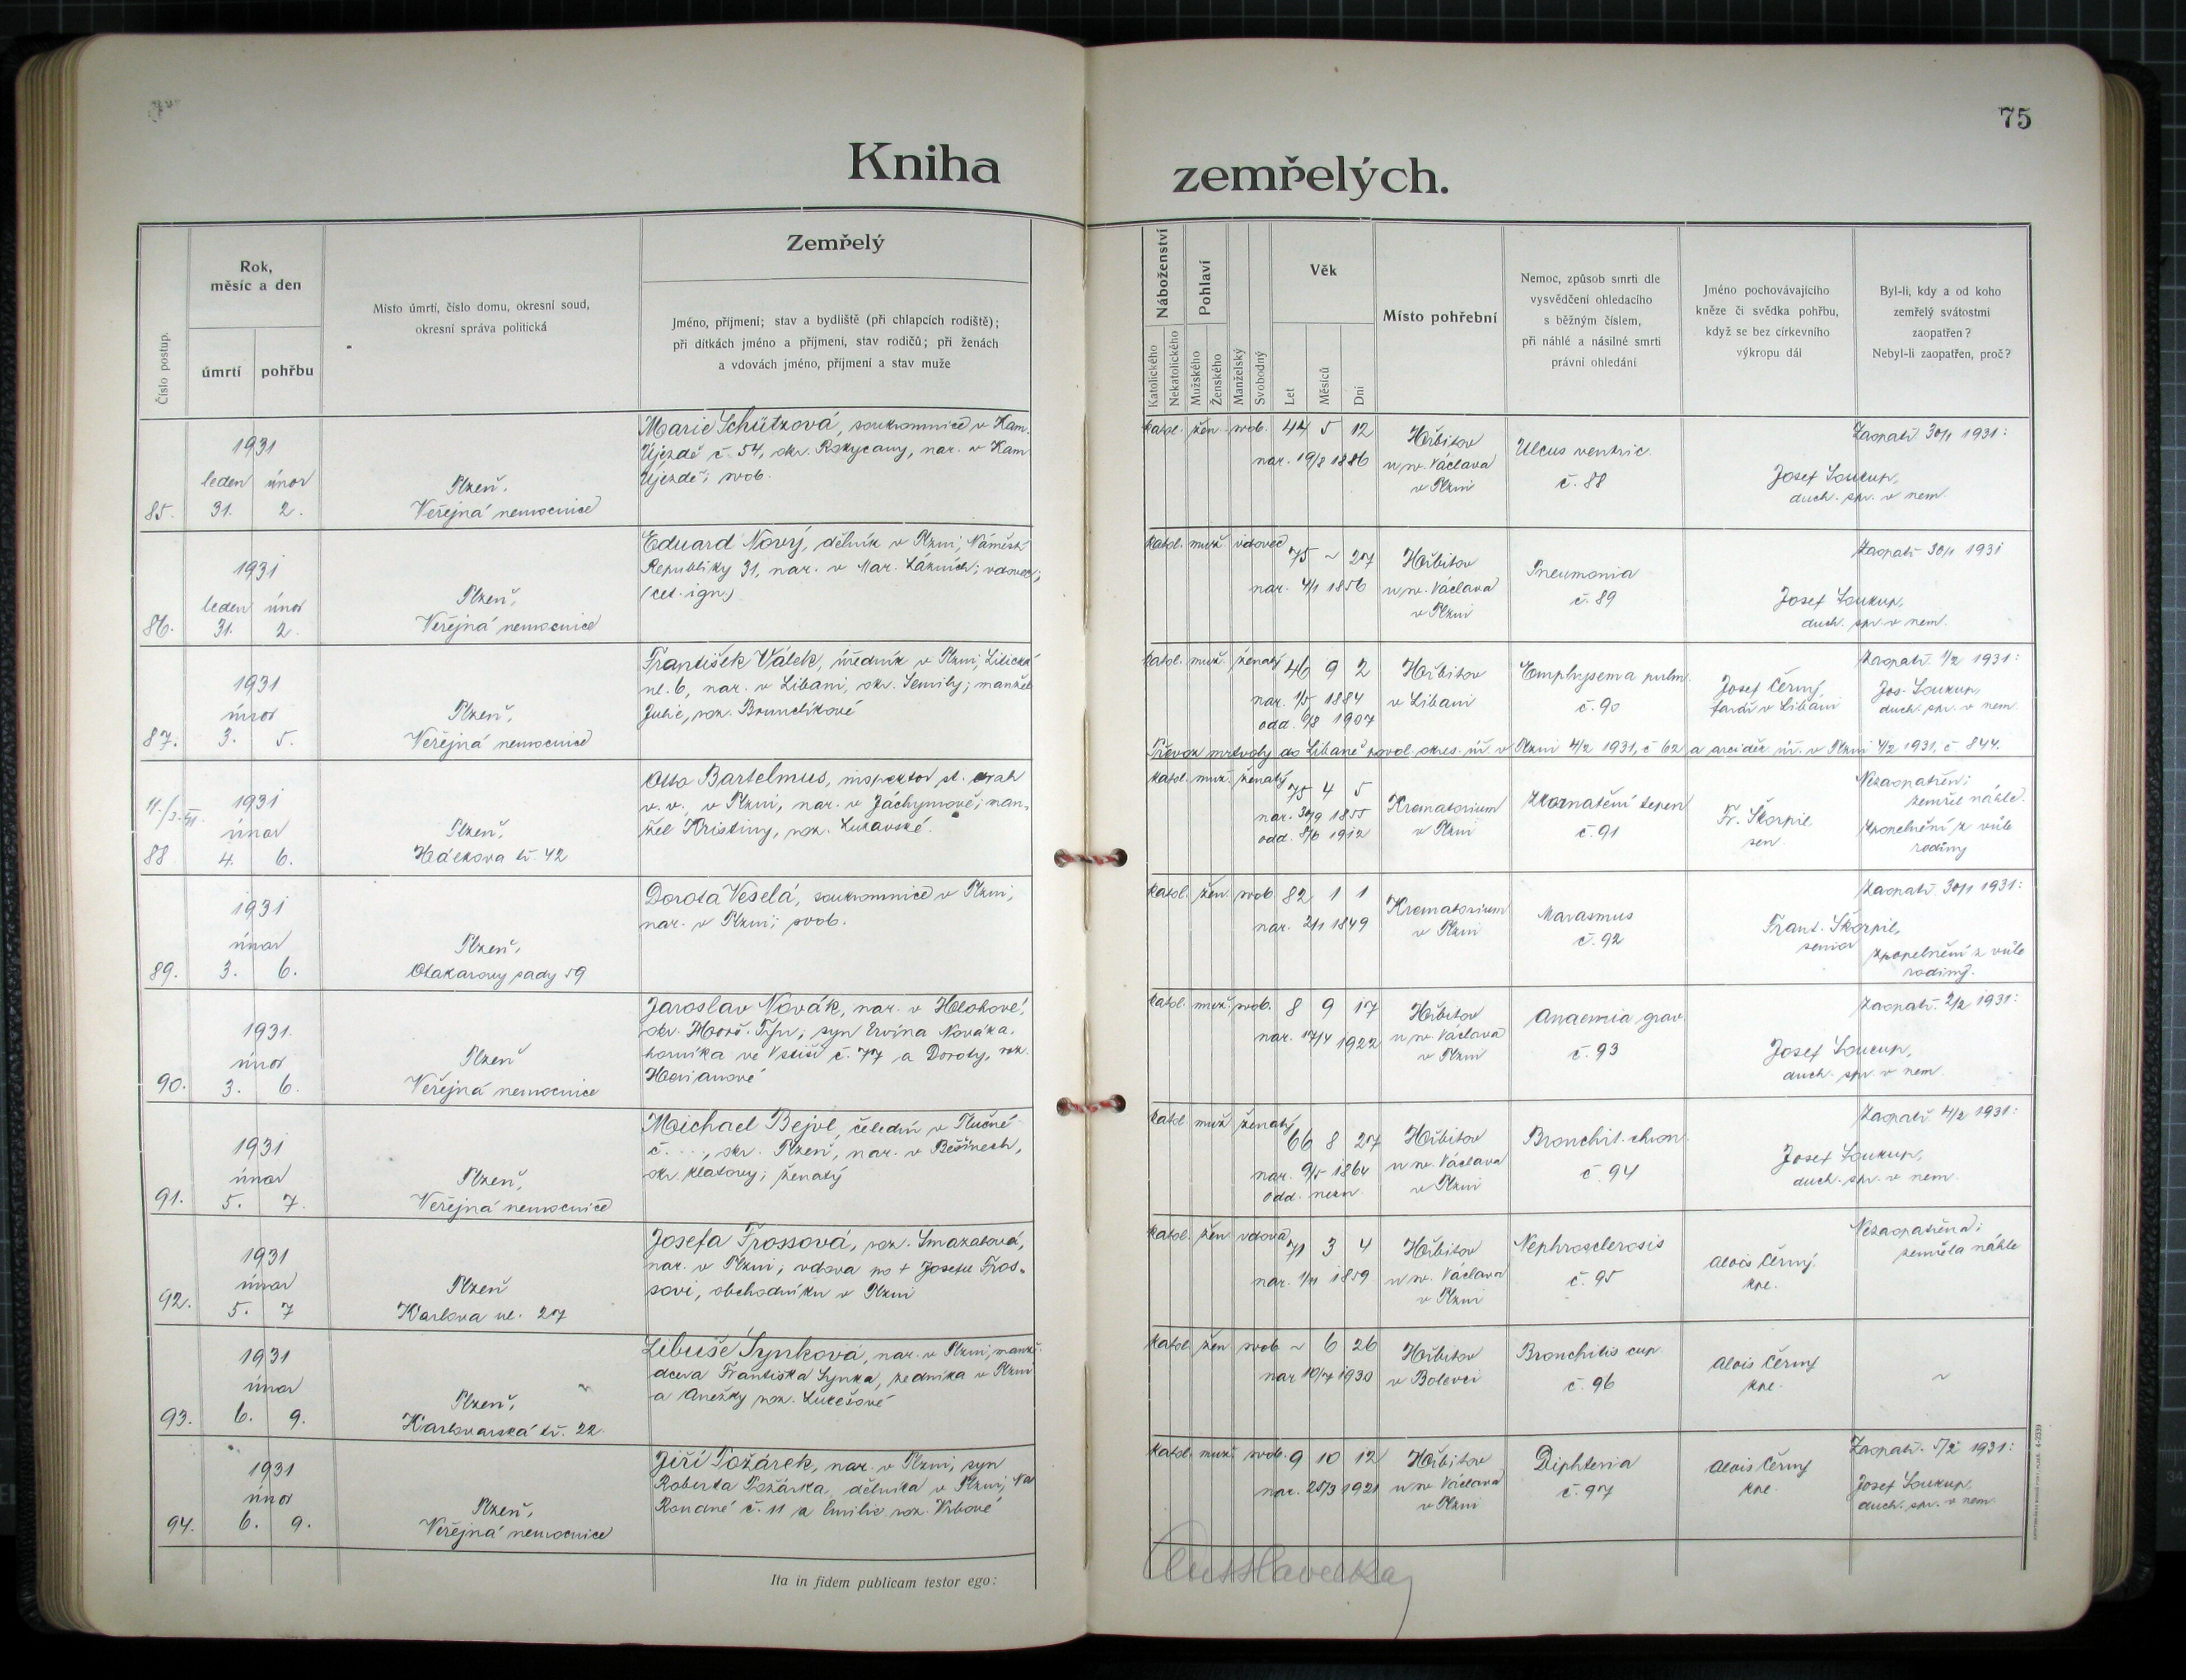 75
Kniha zemřelých.
Číslo postup.
Rok,
měsíc a den
úmrtí
pohřbu
Místo úmrtí, číslo domu, okresní soud,
okresní správa politická
Zemřelý
Jméno, příjmení; stav a bydliště (při chlapcích rodiště);
při dítkách jméno a příjmení, stav rodičů; při ženách
a vdovách jméno, příjmení a stav muže
Náboženství
Katolického
Nekatolického
Pohlaví
Mužského
Ženského
Manželský
Svobodný
Věk
Let
Měsíců
Dní
Místo pohřební
Nemoc, způsob smrti dle
vysvědčení ohledacího
s běžným číslem,
při náhlé a násilné smrti
právní ohledání
Jméno pochovávajícího
kněze či svědka pohřbu,
když se bez církevního
výkropu dál
Byl-li, kdy a od koho
zemřelý svátostmi
zaopatřen?
Nebyl-li zaopatřen, proč?
85.
1931
leden únor
31. 2.
Plzeň,
Veřejná nemocnice
Marie Schützová, soukromnice v Kam.
Újezdě č. 54, okr. Rokycany, nar. v Kam
Újezdě; svob.
katol. žen. svob. 44 5 12
nar. 19/8 1886
Hřbitov
u sv. Václava
v Plzni
Ulcus ventric.
č. 88
Zaopatř. 30/1 1931:
Josef Soukup,
duch. spr. v nem.
86.
1931
leden únor
31. 2.
Plzeň,
Veřejná nemocnice
Eduard Nový, dělník v Plzni, Náměstí
Republiky 31, nar. v Mar. Lázních; vdovec;
(cet. ign.)
katol. muž. vdovec 75 ~ 27
nar. 4/1 1856
Hřbitov
u sv. Václava
v Plzni
Pneumonia
č. 89
Zaopatř. 30/1 1931
Josef Soukup,
duch. spr. v nem.
87.
1931
únor
3. 5.
Plzeň,
Veřejná nemocnice
František Válek, úředník v Plzni, Litická
ul. 6, nar. v Libani, okr. Semily; manžel
Julie, roz. Brunclíkové
katol. muž. ženatý 46 9 2
nar. 1/5 1884
odd. 6/8 1907
Hřbitov
v Libani
Emphysema pulm.
č. 90
Josef Černý,
farář v Libani
Zaopatř. 1/2 1931:
Jos. Soukup,
duch. spr. v nem.
Převoz mrtvoly do Libaně povol. okres. úř. v Plzni 4/2 1931, č 62 a arciděk. úř. v Plzni 4/2 1931, č 844.
88
1931
únor
4. 6.
Plzeň,
Háckova tř. 42
Otto Bartelmus, inspektor st. drah
v. v., v Plzni, nar. v Jáchymově; man-
žel Kristiny, roz. Lukavské.
katol. muž. ženatý 75 4 5
nar. 30/9 1855
odd. 8/6 1912
Krematorium
v Plzni
Zkornatění tepen
č. 91
Fr. Škorpil
sen.
Nezaopatřen;
zemřel náhle.
Zpopelnění z vůle
rodiny
89.
1931
únor
3. 6.
Plzeň,
Otakarovy sady 59
Dorota Veselá, soukromnice v Plzni;
nar. v Plzni; svob.
katol. žen. svob. 82 1 1
nar. 2/1 1849
Krematorium
v Plzni
Marasmus
č. 92
Frant. Škorpil,
senior
Zaopatř. 30/1 1931:
Zpopelnění z vůle
rodiny.
90.
1931.
únor
3. 6.
Plzeň
Veřejná nemocnice
Jaroslav Novák, nar. v Holohově,
okr. Horš. Týn; syn Ervína Nováka,
horníka ve Vstiši č. 77 a Doroty, roz.
Horianové
katol. muž. svob. 8 9 17
nar. 17/4 1922
Hřbitov
u sv. Václava
v Plzni
Anaemia grav.
č. 93
Zaopatř. 2/2 1931:
Josef Soukup,
duch. spr. v nem.
91.
1931
únor
5. 7.
Plzeň,
Veřejná nemocnice
Michael Bejvl, čeledín v Tlučné
č. ..., okr. Plzeň, nar. v Běšinech,
okr. Klatovy; ženatý
katol. muž ženatý 66 8 27
nar. 9/5 1864
odd. nezn.
Hřbitov
u sv. Václava
v Plzni
Bronchit. chron.
č. 94
Zaopatř. 4/2 1931:
Josef Soukup,
duch. spr. v nem.
92.
1931
únor
5. 7
Plzeň
Karlova ul. 27
Josefa Frossová, roz. Smazalová,
nar. v Plzni; vdova po + Josefu Fros-
sovi, obchodníku v Plzni
katol. žen vdova 71 3 4
nar. 1/11 1859
Hřbitov
u sv. Václava
v Plzni
Nephrosclerosis
č. 95
Alois Černý
kpl.
Nezaopatřena;
zemřela náhle
93.
1931
únor
6. 9.
Plzeň,
Karlovarská tř. 22.
Libuše Synková, nar. v Plzni, manž.
dcera Františka Synka, zedníka v Plzni
a Anežky roz. Lukešové
katol. žen svob ~ 6 26
nar 10/7 1930
Hřbitov
v Bolevci
Bronchitis cap.
č. 96
Alois Černý
kpl.
~
94.
1931
únor
6. 9.
Plzeň,
Veřejná nemocnice
Jiří Požárek, nar. v Plzni, syn
Roberta Požárka, dělníka v Plzni, Na
Roudné č. 11 a Emilie roz. Vrbové
katol. muž. svob. 9 10 12
nar. 25/3 1921
Hřbitov
u sv. Václava
v Plzni
Diphteria
č. 97
Alois Černý
kpl.
Zaopatř. 5/2 1931:
Josef Soukup,
duch. spr. v nem.
Ita in fidem publicam testor ego: